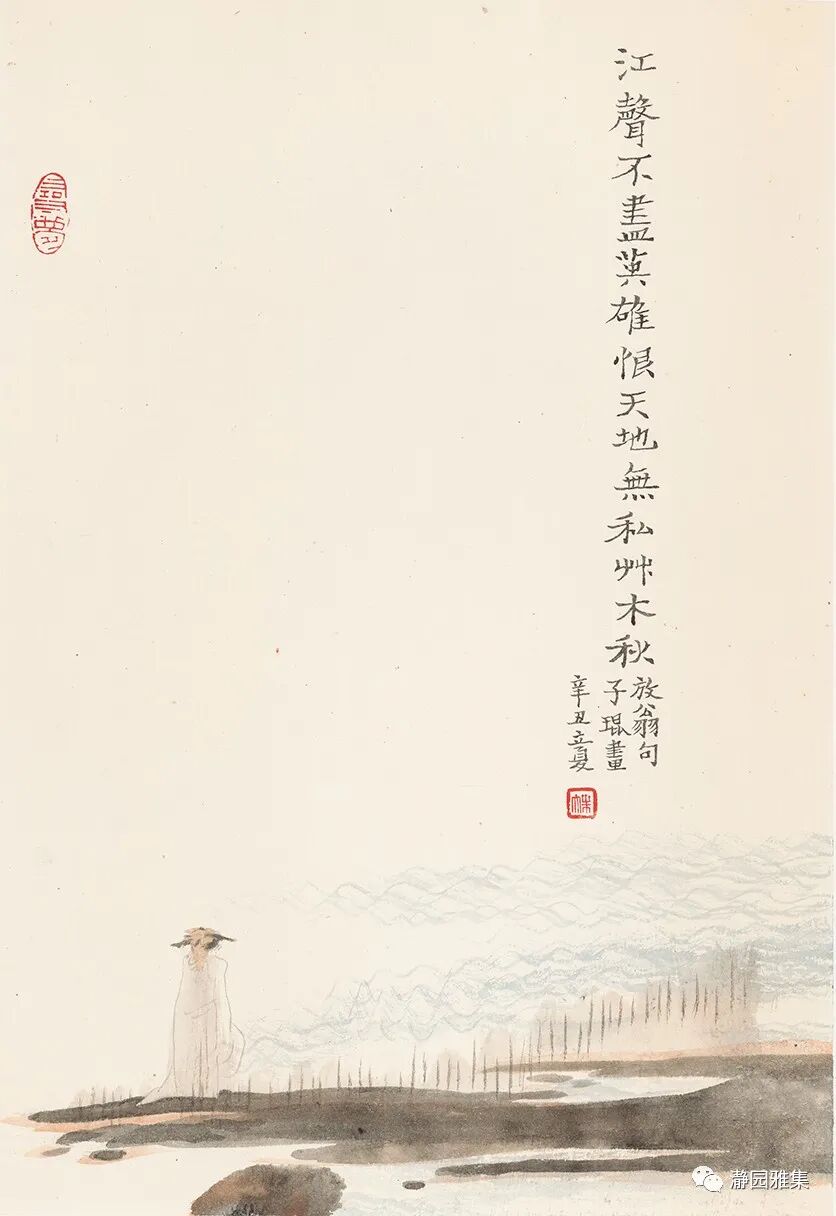 江聲不盡英雄恨天地無私艸木秋
放翁句
子琨畫
辛丑立夏
尋夢
瀞园雅集